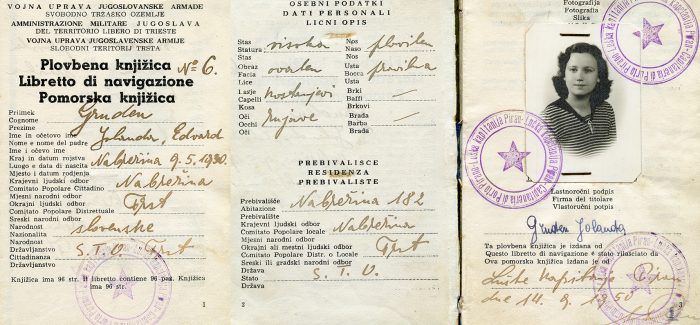 VOJNA UPRAVA JUGOSLOVANSKE ARMADE
SVOBODNO TRŽAŠKO OZEMLJE
AMMINISTRAZIONE MILITARE JUGOSLAVA
DEL TERRITORIO LIBERO DI TRIESTE
VOJNA UPRAVA JUGOSLAVENSKE ARMIJE
SLOBODNI TERITORIJ TRSTA
Plovbena knjižica No 6.
Libretto di navigazione
Pomorska knjižica
Priimek Gruden
Cognome
Prezime
Ime in očetovo ime Jolanda, Edvard
Nome e nome del padre
Ime i očevo ime
Kraj in datum rojstva Nabrežina 9.5.1930.
Luogo e data di nascita
Mjesto i datum rođenja
Krajevni ljudski odbor Nabrežina
Comitato Popolare Cittadino
Mjesni narodni odbor
Okrajni ljudski odbor Trst
Comitato Popolare Distrettuale
Sreski narodni odbor
Narodnost slovenske
Nazionalita
Narodnost
Državljanstvo S. T. O. Trst
Cittadinanza
Državljanstvo
Knjižica ima 96 str. Il libretto contiene 96 pag. Knjižica
ima 96 str.
1
OSEBNI PODATKI
DATI PERSONALI
LICNI OPIS
Stas visoka Nos pravilen
Statura Naso
Stas Nos
Obraz ovalen Usta pravilna
Faccia Bocca
Lice Usta
Lasje kostanjevi Brki
Capelli Baffi
Kosa Brkovi
Oči rujave Brada
Occhi Barba
Oči Brada
PREBIVALISCE
RESIDENZA
PREBIVALISTE
Prebivališče Nabrežina 182
Abitazione
Prebivalište
Krajevni ljudski odbor Nabrežina
Comitato Popolare locale
Mjesni narodni odbor
Okrajni ali mestni ljudski odbor Trst
Comitato Popolare Distr. o Locale
Sreski ili gradski narodni odbor
Država S. T. O.
Stato
Država
2
Fotografija
Fotografia
Slika
Lučka kapitanija Piran
Capitaneria di Porto Pirano
Lastnoročni podpis
Firma del titolare
Vlastoručni potpis
Gruden Jolanda
Ta plovbena knjižica je izdana od
Questo libretto di navigazione è stato rilasciato da
Ova pomorska knjižica izdana je od
Luške kapitanije Piran
dne 14. 9. 1950
3